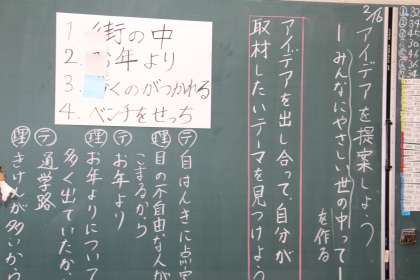 2/16
アイデアを提案しよう
―みんなにやさしい世の中って
を作る
アイデアを出し合って、自分が
取材したいテーマを見つけよう
1. 街の中
2. お年より
3. くのがつかれる
4. ベンチをせっち
テ 自はんきに点字
理 目の不自由な人が
こまるから
テ お年より
理 お年よりについて
多く出ていたか
テ 通学路
理 きけんが多いから